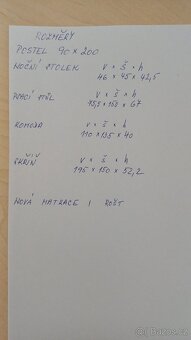 ROZMĚRY
POSTEL 90 x 200
NOČNÍ STOLEK v x š x h
46 x 45 x 42,5
PSACÍ STŮL v x š x h
75,5 x 150 x 67
KOMODA v x š x h
110 x 135 x 40
SKŘÍŇ v x š x h
195 x 150 x 52,2
NOVÁ MATRACE I ROŠT
Bazoš.cz